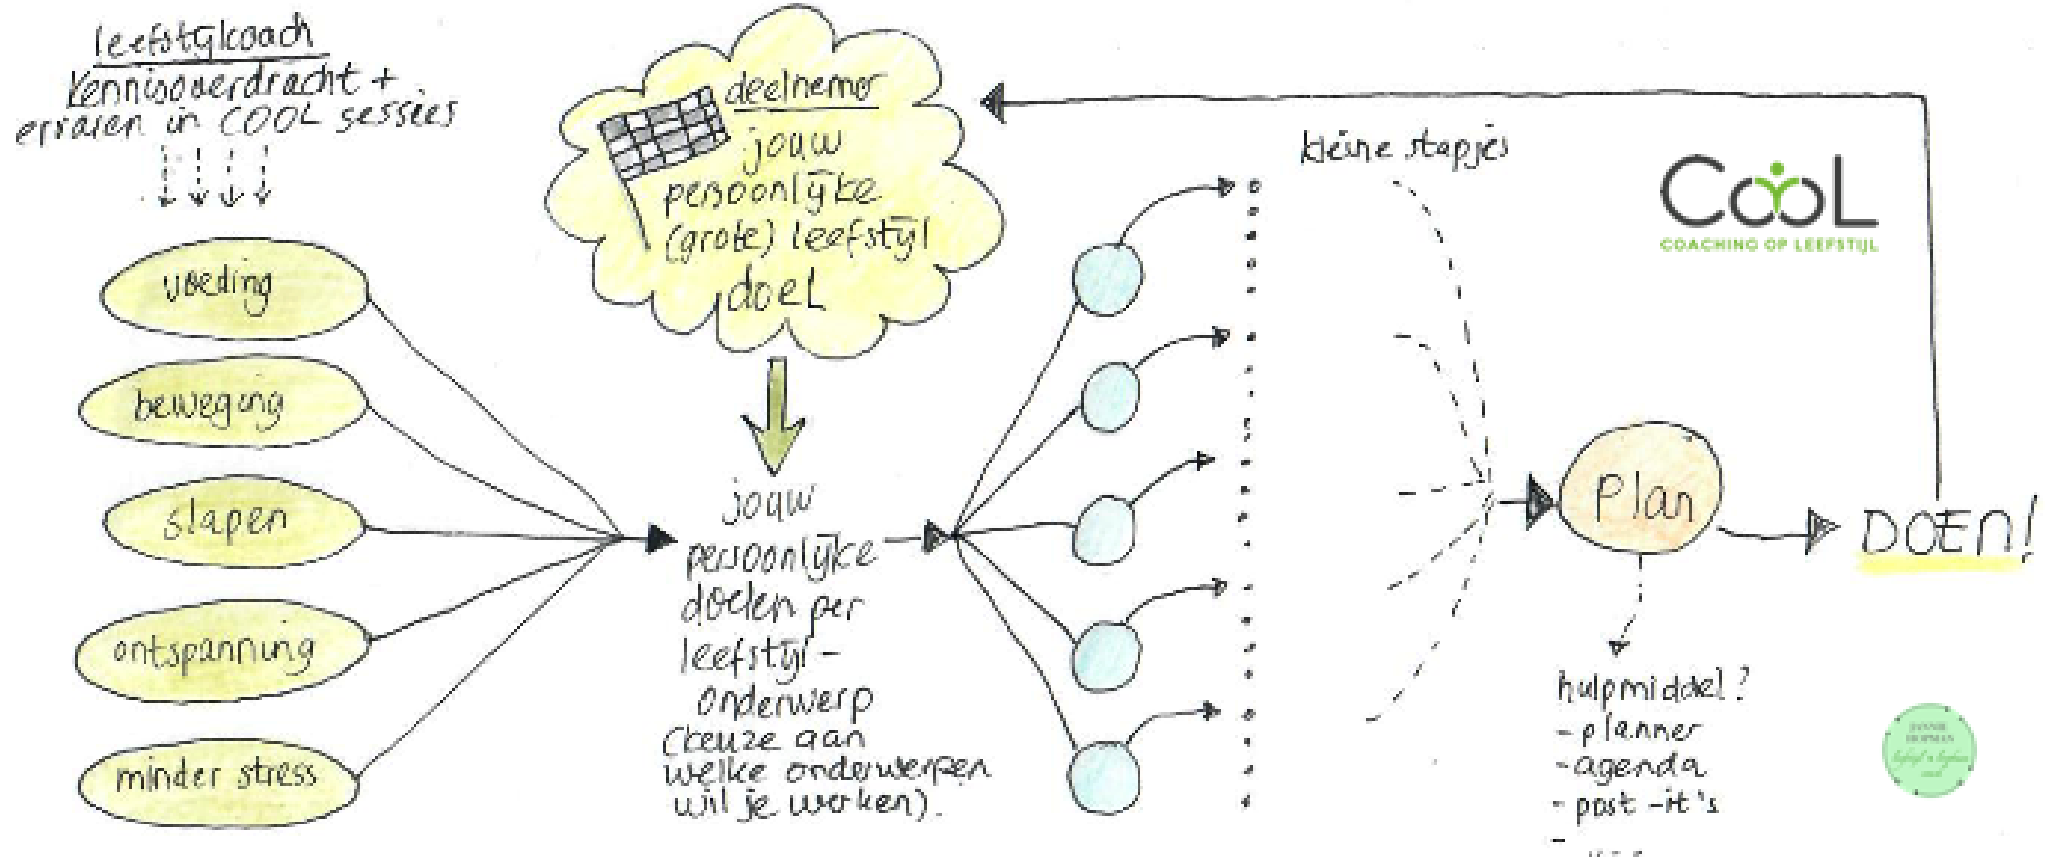 leefstijlcoach
kennisoverdracht +
ervaren in COOL sessies
voeding
beweging
slapen
ontspanning
minder stress
deelnemer
jouw
persoonlijke
(grote) leefstijl
doel
jouw
persoonlijke
doelen per
leefstijl-
onderwerp
(keuze aan
welke onderwerpen
wil je werken).
kleine stapjes
CooL
COACHING OP LEEFSTIJL
Plan
DOEN!
hulpmiddel?
- planner
- agenda
- post-it's
-
HOPMAN